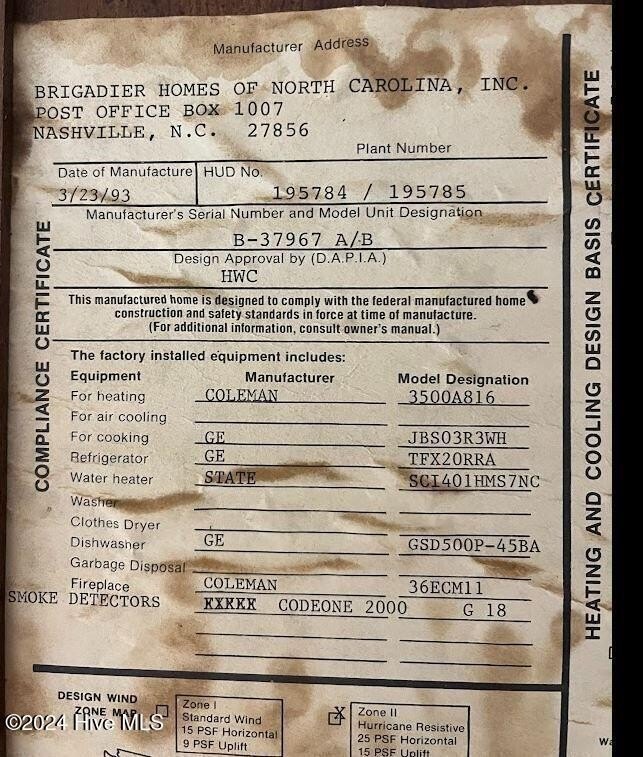 Manufacturer Address
BRIGADIER HOMES OF NORTH CAROLINA, INC.
POST OFFICE BOX 1007
NASHVILLE, N.C. 27856
Plant Number
Date of Manufacture HUD No.
3/23/93 195784 / 195785
Manufacturer's Serial Number and Model Unit Designation
B-37967 A/B
Design Approval by (D.A.P.I.A.)
HWC
This manufactured home is designed to comply with the federal manufactured home
construction and safety standards in force at time of manufacture.
(For additional information, consult owner's manual.)
The factory installed equipment includes:
Equipment Manufacturer Model Designation
For heating COLEMAN 3500A816
For air cooling
For cooking GE JBS03R3WH
Refrigerator GE TFX20RRA
Water heater STATE SCI401HMS7NC
Washer
Clothes Dryer
Dishwasher GE GSD500P-45BA
Garbage Disposal
Fireplace COLEMAN 36ECM11
SMOKE DETECTORS CODEONE 2000 G 18
COMPLIANCE CERTIFICATE
HEATING AND COOLING DESIGN BASIS CERTIFICATE
DESIGN WIND
ZONE MAP
Zone I
Standard Wind
15 PSF Horizontal
9 PSF Uplift
X
Zone II
Hurricane Resistive
25 PSF Horizontal
15 PSF Uplift
©2024 Hive MLS